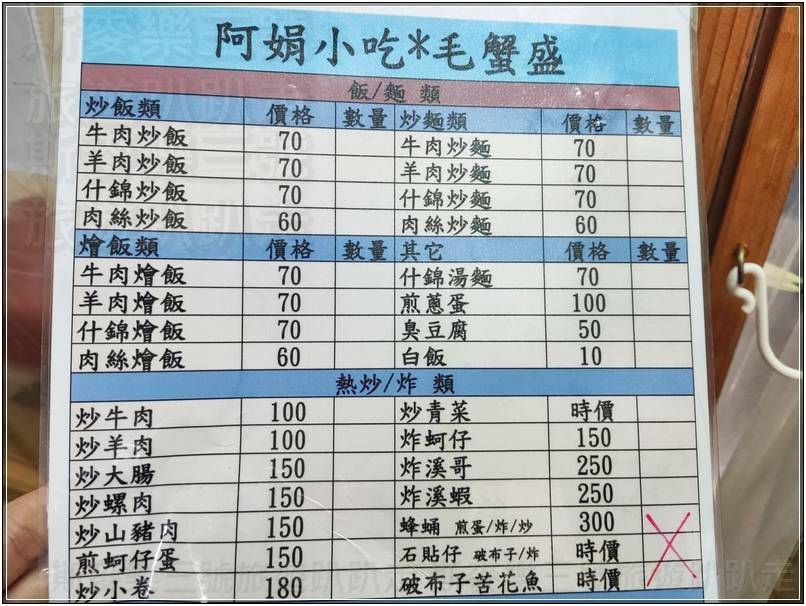 阿娟小吃*毛蟹盛
飯/麵 類
炒飯類 價格 數量 炒麵類 價格 數量
牛肉炒飯 70 牛肉炒麵 70
羊肉炒飯 70 羊肉炒麵 70
什錦炒飯 70 什錦炒麵 70
肉絲炒飯 60 肉絲炒麵 60
燴飯類 價格 數量 其它 價格 數量
牛肉燴飯 70 什錦湯麵 70
羊肉燴飯 70 煎蔥蛋 100
什錦燴飯 70 臭豆腐 50
肉絲燴飯 60 白飯 10
熱炒/炸 類
炒牛肉 100 炒青菜 時價
炒羊肉 100 炸蚵仔 150
炒大腸 150 炸溪哥 250
炒螺肉 150 炸溪蝦 250
炒山豬肉 150 蜂蛹 煎蛋/炸/炒 300
煎蚵仔蛋 150 石貼仔 破布子/炸 時價
炒小卷 180 破布子苦花魚 時價